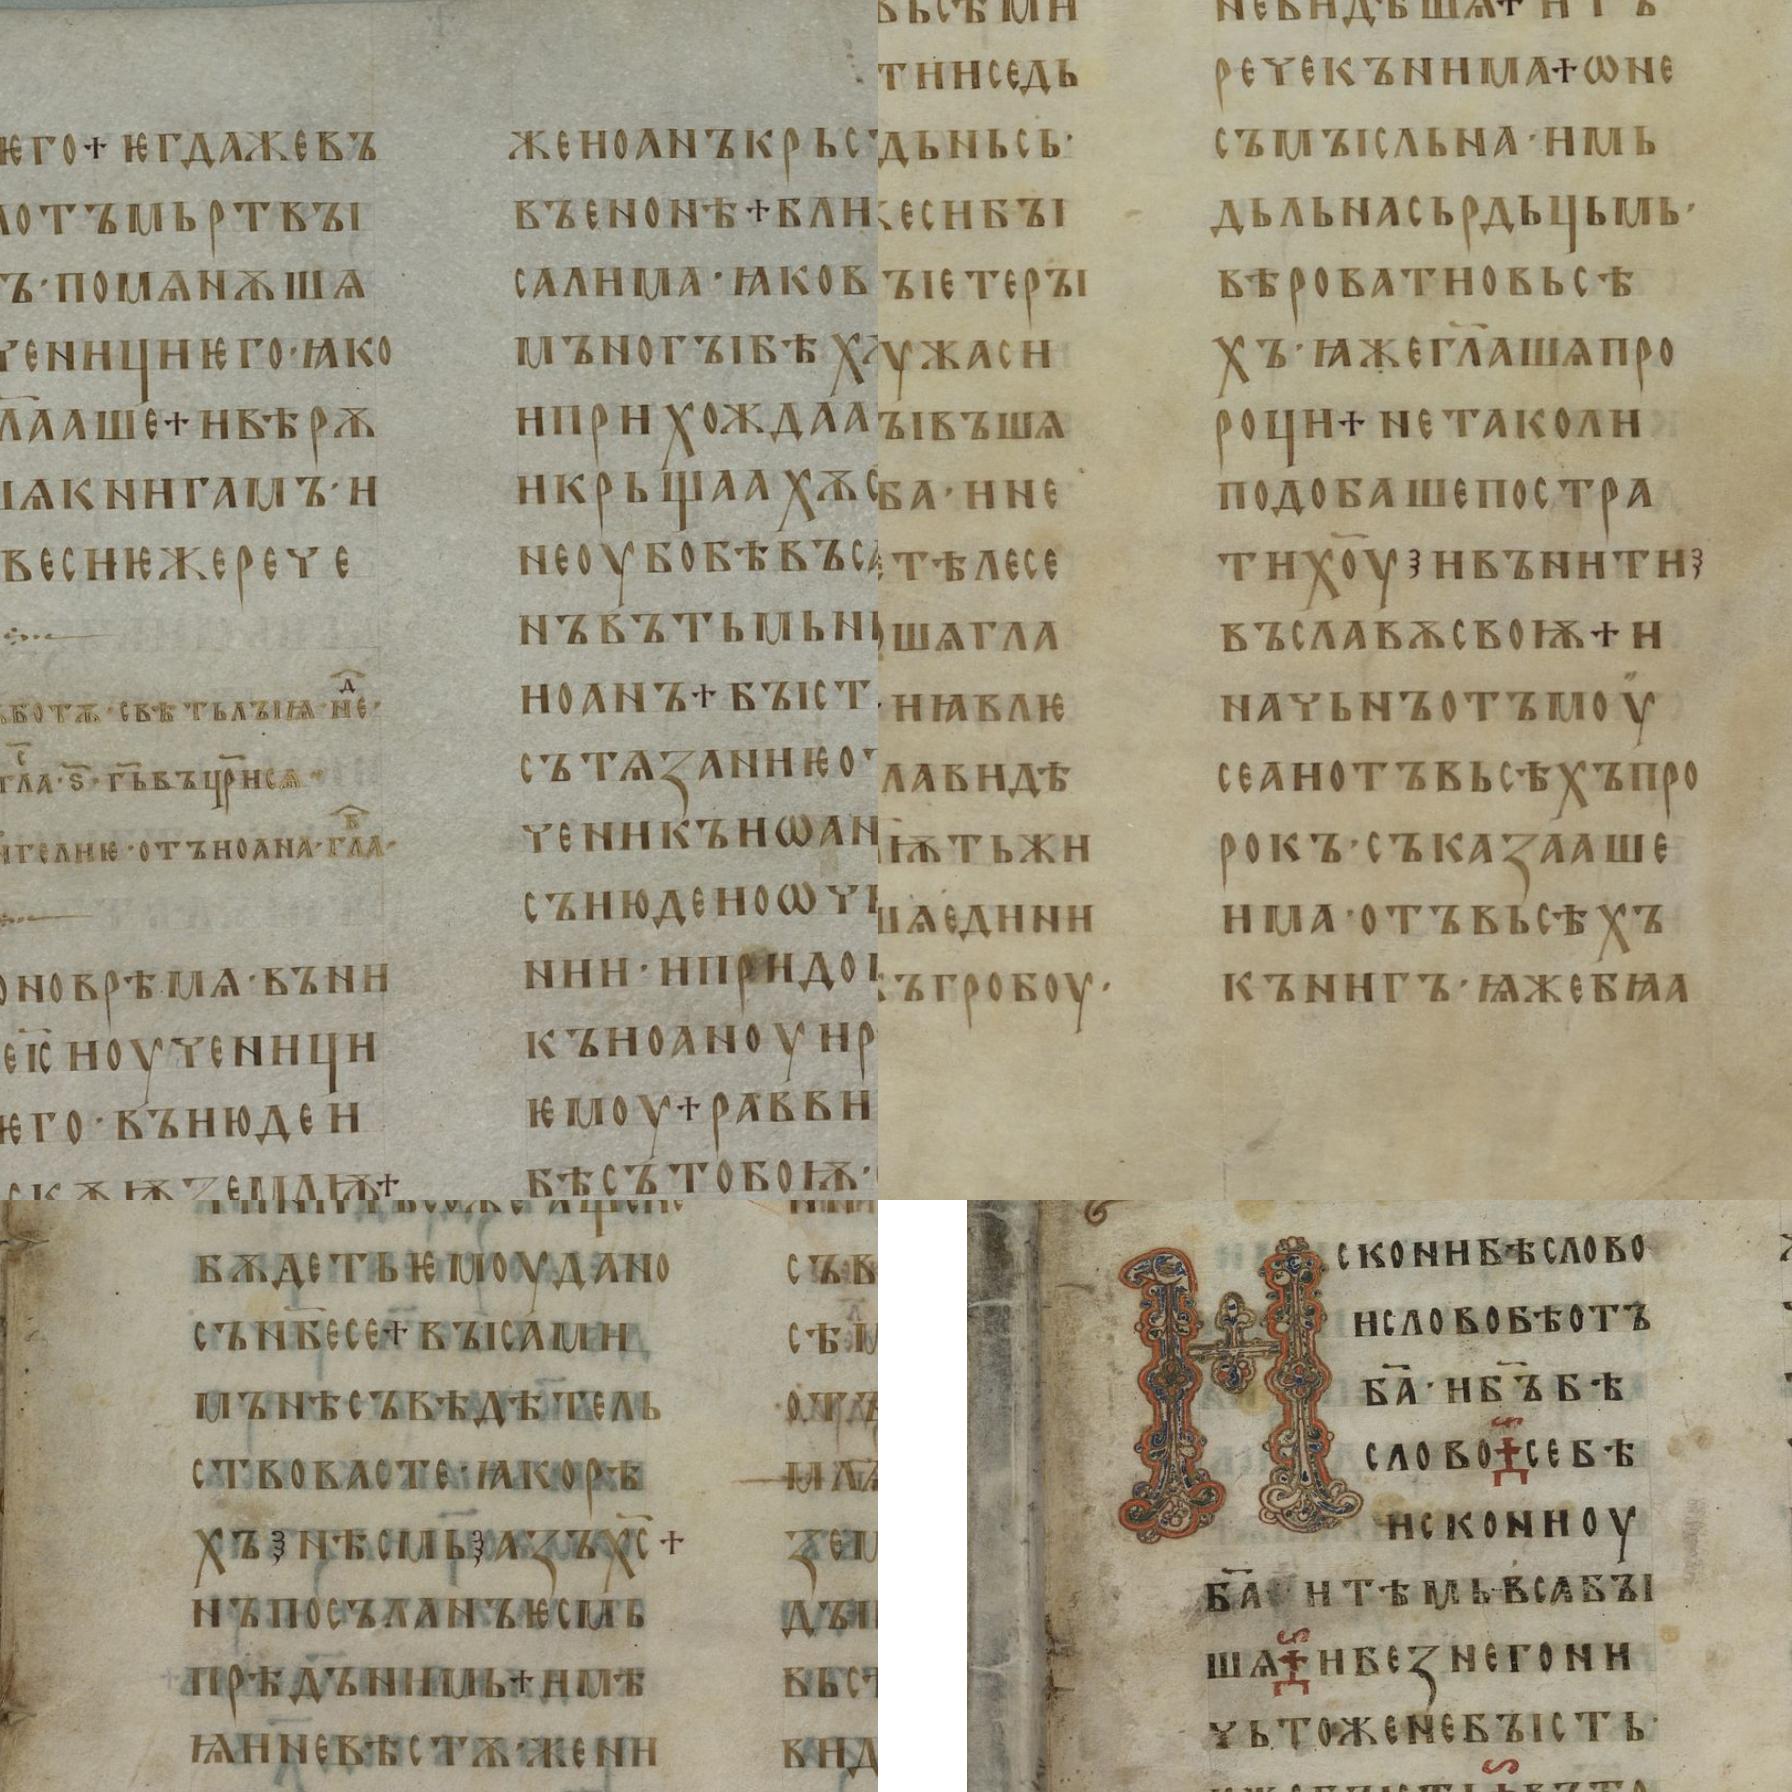 ѥго+ ѥгдажевъ
отъмьртвъі
ъ·помѧнѫшѧ
ченициѥго·ꙗко
гл҃ааше+ивѣрѫ
шѧкнигамъ·и
весиѥжерече
ботѫ·свѣтьлъіѩ·не·
гла·ѕ·гь҃въцр҃исѧ·
нгелиѥ·отъиоана·гла·
оноврѣмѧ·въни
еіс҃ иоученици
ѥго·въиюдеи
скѫѭземлѭ+
женоанъкрьс
въенонѣ+бли
салима·ꙗков
мъногъібѣхѫ
иприхождаа
икрьщаахѫс
неоубобѣвъса
нъвътьмьни
иоанъ+бъіст
сътѧзаниѥо
ченикъиѡан
съиюденоѡчи
нии·ипридо
къиоаноуир
ѥмоу+равви
бѣстобоѭ·
вьсѣми
тииседь
дьньсь·
жесибъі
ъіетеръі
ужаси
ъівъшѧ
ба·ине
етѣлесе
шѧгла
·иꙗвлѥ
лавидѣ
ѭтьжи
шѧедини
къгробоу·
невидѣшѧ+ и т ъ
речекънима+ѡне
съмъісльна·имь
дьльнасьрдьцьмь·
вѣроватиовьсѣ
хъ·ꙗжегл҃ашѧпро
роци+ нетаколи
подобашепостра
тихо҃уꙁивънитиꙁ
въславѫсвоѭ+и
начьнъотъмоу
сеаиотъвьсѣхъпро
рокъ·съказааше
има·отъвьсѣхъ
кънигъ·ѩжебѣаа
бѫдетьѥмоудано
съниб҃есе+въісами
мънѣсъвѣдѣтель
ствовасте·ꙗкорѣ
хъꙁнѣсмьꙁазъхс҃+
нъпосъланъѥсмь
прѣдъ҃нимь+имѣ
ѩин҃евѣстѫ·жени
съв
сѣм
отъ
зем
дъі
вьст
вид
сконибѣслово
исловобѣотъ
ба҃·иб҃ъбѣ
слово+себѣ
исконноу
ба҃ итѣмьвсабъі
шѧ+ибезнегони
чьтоженебъість·